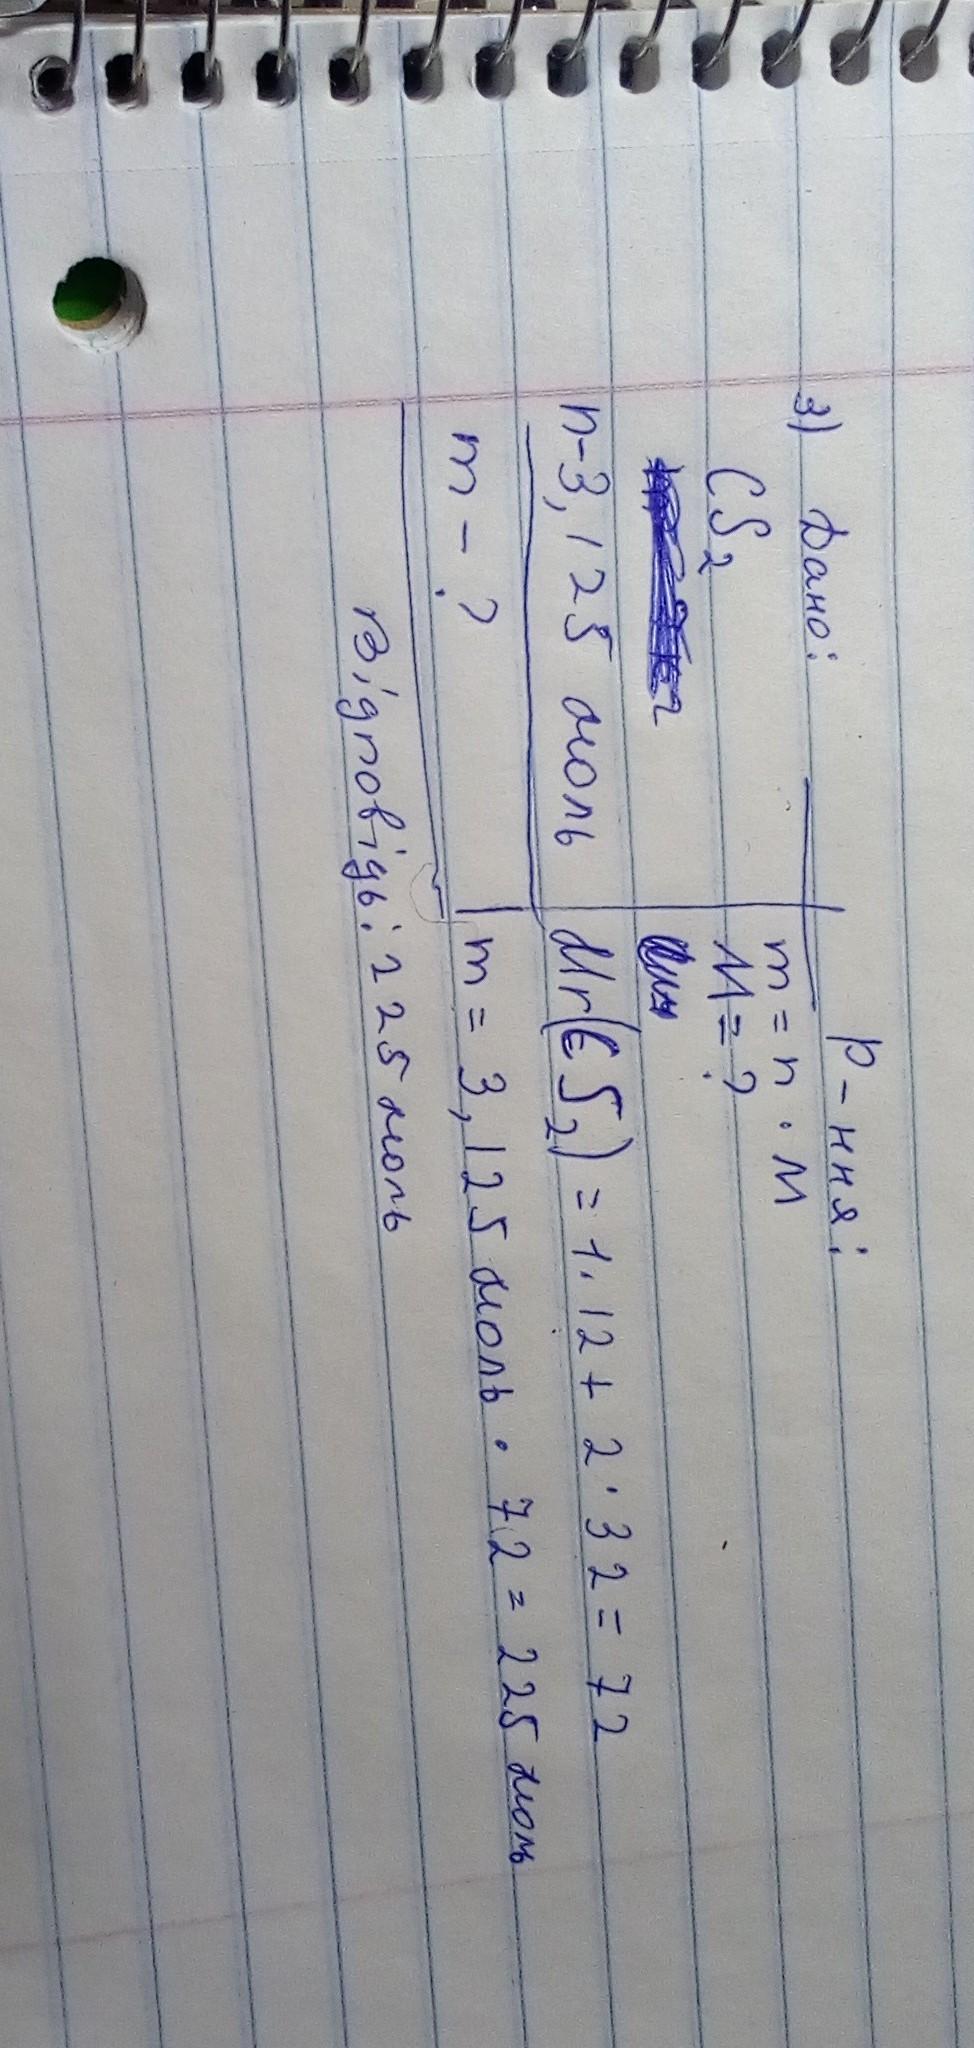 3) Дано:
CS2
n-3,125 моль
m - ?
р-ння:
m = n · M
M = ?
Mr(CS2) = 1·12 + 2·32 = 72
m = 3,125 моль · 72 = 225 моль
Відповідь: 225 моль